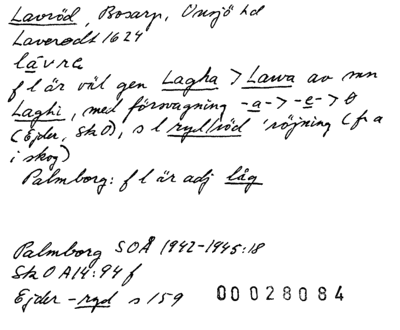 Lavröd, Bosarp, Onsjö hd
Laverødt 1624
lávrœ
f l är väl gen Lagha > Lawa av mn
Laghi, med försvagning -a- > -e- > 0
(Ejder, Sk O), s l ryd/röd 'röjning (fr a
i skog)
Palmborg: f l är adj låg
Palmborg SOÅ 1942-1945:18
Sk O A14:94 f
Ejder -ryd s 159 00028084